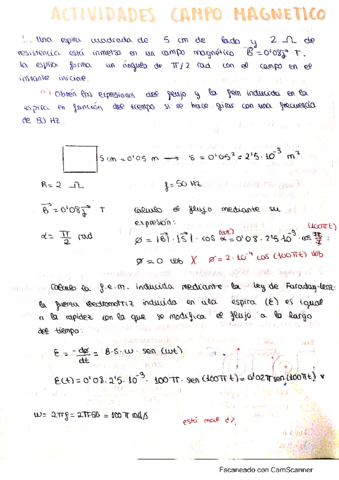 ACTIVIDADES CAMPO MAGNETICO
1. Una espira cuadrada de 5 cm de lado y 2 Ω de
resistencia está inmersa en un campo magnético B⃗ = 0'08j⃗ T.
La espira forma un ángulo de π/2 rad con el campo en el
instante inicial.
Obtén las expresiones del flujo y la fem inducida en la
espira en función del tiempo si se hace girar con una frecuencia
de 50 Hz.
5 cm = 0'05 m → S = 0'05² = 2'5·10⁻³ m²
R = 2 Ω f = 50 Hz
B⃗ = 0'08j⃗ T Calculo el flujo mediante su
expresión:
α = π/2 rad Ø = |B⃗|·|S⃗|·cos α = 0'08·2'5·10⁻³·cos π/2
(wt) (100πt)
Ø = 0 Wb X Ø = 2·10⁻⁴ cos (100πt) Wb
Calculo la f.e.m. inducida mediante la ley de Faraday-Lenz:
la fuerza electromotriz inducida en una espira (E) es igual
a la rapidez con la que se modifica el flujo a lo largo
del tiempo:
E = -dø/dt = B·S·w·sen (wt)
E(t) = 0'08·2'5·10⁻³·100π·sen (100πt) = 0'02π sen (100πt) V
w = 2πf = 2π·50 = 100π rad/s
está mal d?
Escaneado con CamScanner